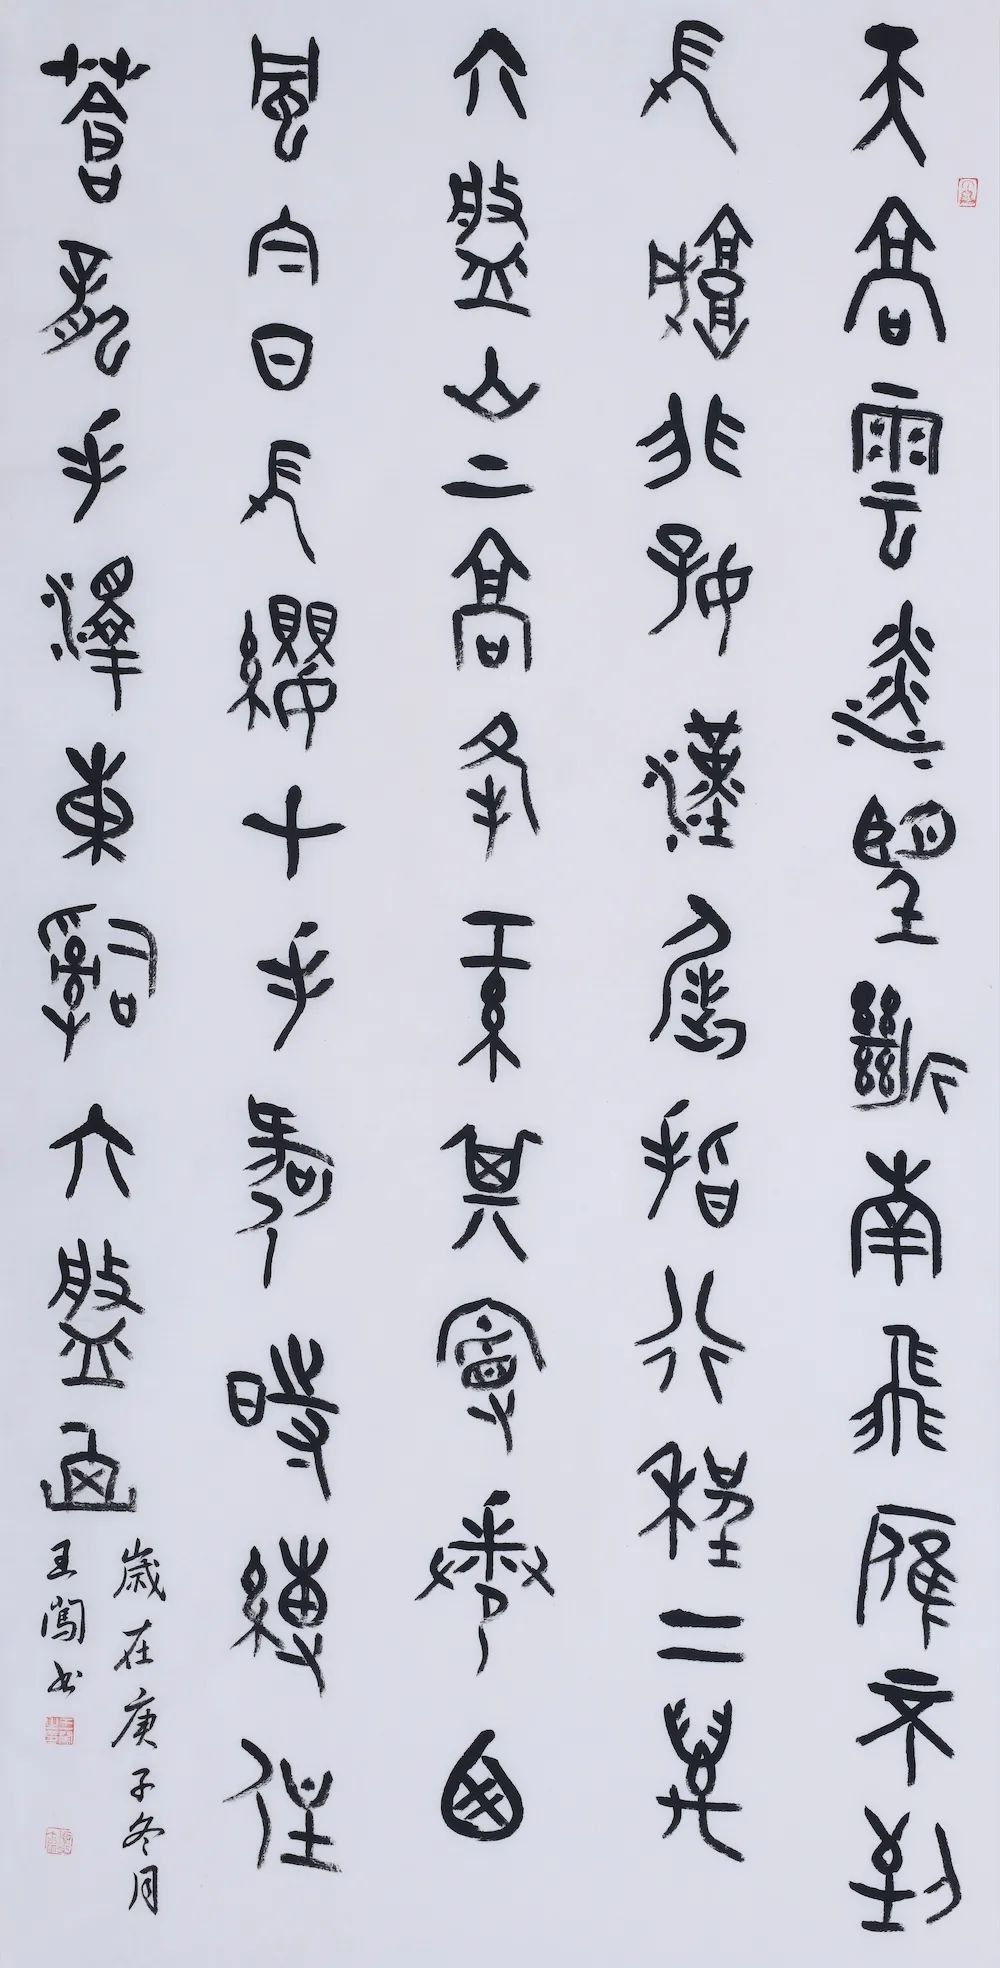 天高雲淡望斷南飛雁不到
長城非好漢屈指行程二萬
六盤山上高峰紅旗漫卷西
風今日長纓在手何時縛住
蒼龍毛澤東詞六盤
歲在庚子冬月
王闖書